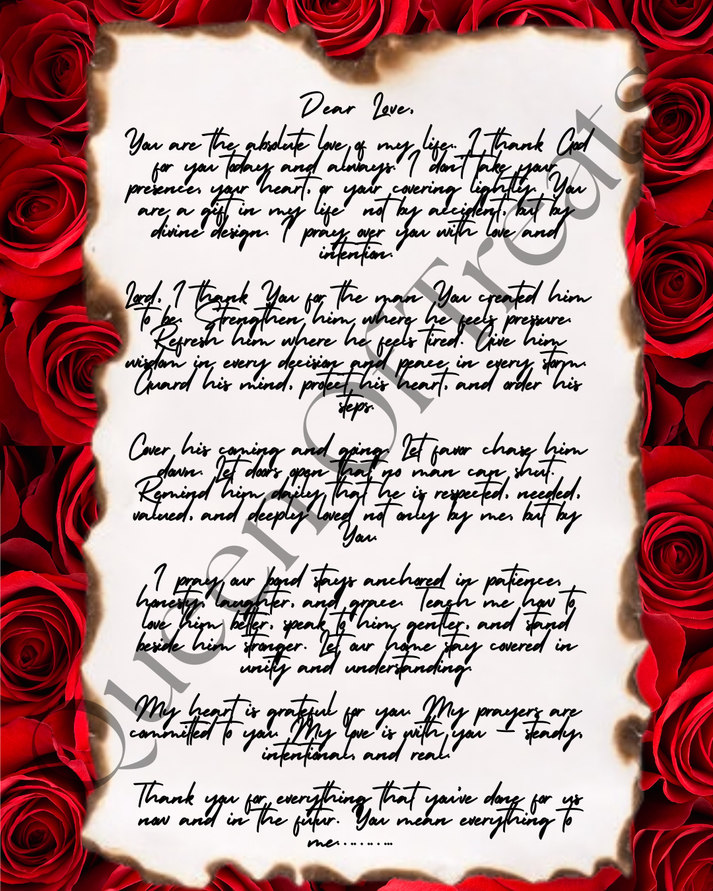 Dear Love,
You are the absolute love of my life. I thank God
for you today and always. I don't take your
presence, your heart, or your covering lightly. You
are a gift in my life not by accident, but by
divine design. I pray over you with love and
intention.
Lord, I thank You for the man You created him
to be. Strengthen him where he feels pressure.
Refresh him where he feels tired. Give him
wisdom in every decision and peace in every storm.
Guard his mind, protect his heart, and order his
steps.
Cover his coming and going. Let favor chase him
down. Let doors open that no man can shut.
Remind him daily that he is respected, needed,
valued, and deeply loved not only by me, but by
You.
I pray our bond stays anchored in patience,
honesty, laughter, and grace. Teach me how to
love him better, speak to him gentler, and stand
beside him stronger. Let our home stay covered in
unity and understanding.
My heart is grateful for you. My prayers are
committed to you. My love is with you — steady,
intentional, and real.
Thank you for everything that you've done for us
now and in the futur. You mean everything to
me..........
Queen Of Treats